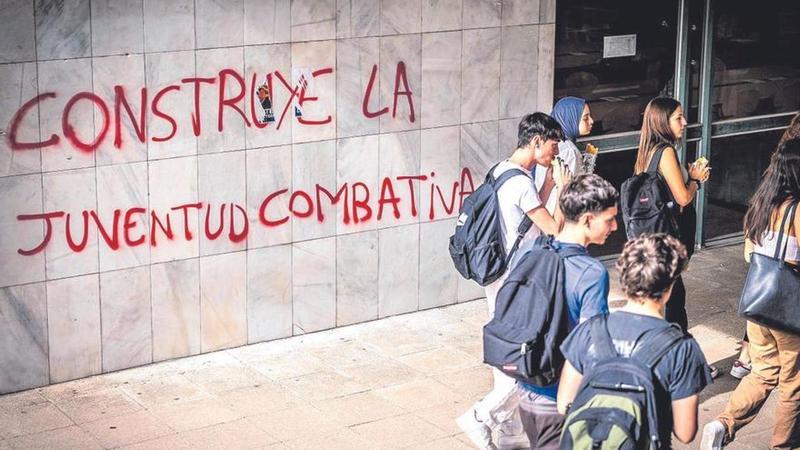 CONSTRUYE LA
JUVENTUD COMBATIVA